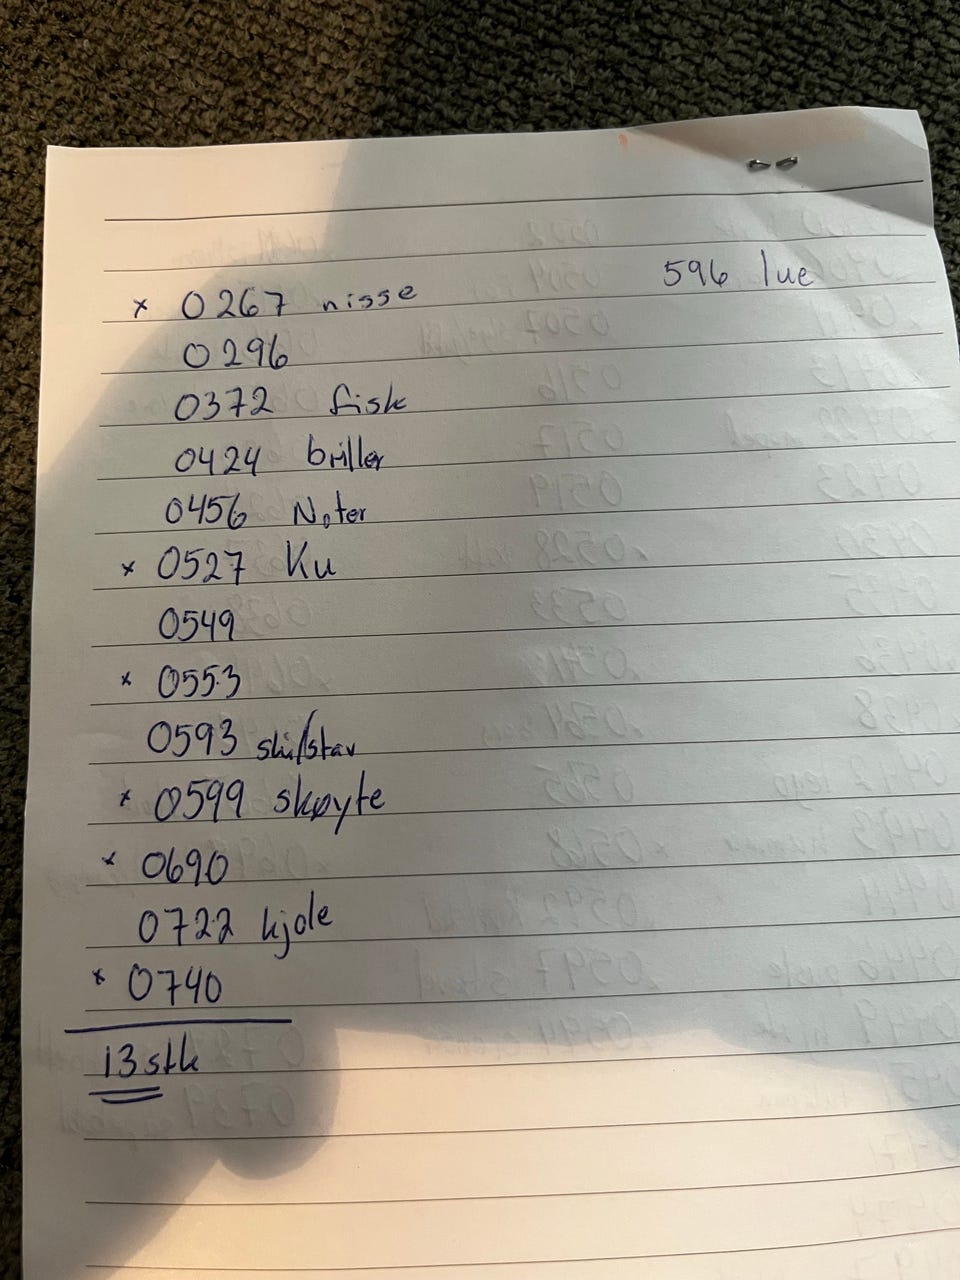 x 0267 nisse
596 lue
0296
0372 fisk
0424 briller
0456 Noter
x 0527 Ku
0549
x 0553
0593 ski/stav
x 0599 skøyte
x 0690
0722 kjole
x 0740
13 stk